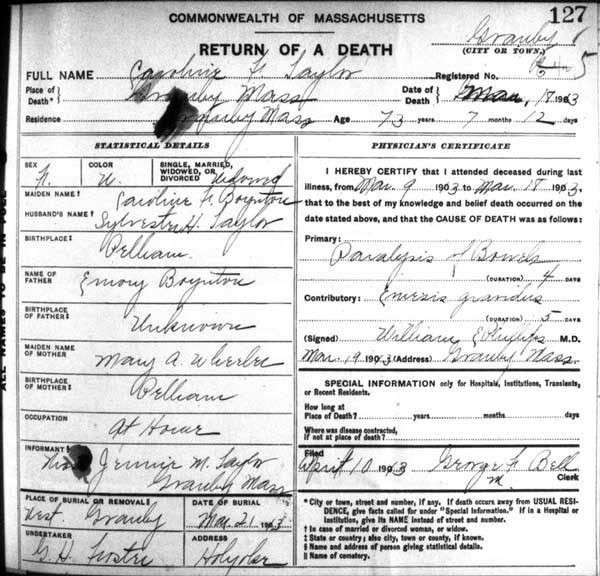 127
COMMONWEALTH OF MASSACHUSETTS
Granby
RETURN OF A DEATH
(CITY OR TOWN.)
FULL NAME Caroline F. Taylor
Registered No. 5
Place of Death* } Granby Mass
Date of Death } Mar, 18 1903
Residence Granby Mass Age 73 years 7 months 12 days
STATISTICAL DETAILS
SEX
COLOR
SINGLE, MARRIED, WIDOWED, OR DIVORCED Widowed
MAIDEN NAME † Caroline F. Boynton
HUSBAND'S NAME † Sylvester H. Taylor
BIRTHPLACE ‡
Pelham.
NAME OF FATHER Emory Boynton
BIRTHPLACE OF FATHER ‡
Unknown
MAIDEN NAME OF MOTHER Mary A. Wheeler
BIRTHPLACE OF MOTHER ‡
Pelham
OCCUPATION
At Home
INFORMANT §
Jennie M. Taylor
Granby Mass
PLACE OF BURIAL OR REMOVAL ||
West Granby
DATE OF BURIAL
Mar 21 1903
UNDERTAKER
ADDRESS
Holyoke
PHYSICIAN'S CERTIFICATE
I HEREBY CERTIFY that I attended deceased during last
illness, from Mar. 9 1903 to Mar. 18 1903,
that to the best of my knowledge and belief death occurred on the
date stated above, and that the CAUSE OF DEATH was as follows:
Primary:
Paralysis of Bowels
(DURATION) 4 DAYS
Contributory: Emesis
(DURATION) 5 DAYS
(Signed) William E Phillips M.D.
Mar. 19 1903 (Address) Granby Mass.
SPECIAL INFORMATION only for Hospitals, Institutions, Transients,
or Recent Residents.
How long at
Place of Death? years months days
Where was disease contracted,
if not at place of death?
Filed
April 10 1903 George F. Bell
Clerk
* City or town, street and number, if any. If death occurs away from USUAL RESI-
DENCE, give facts called for under "Special Information." If in a Hospital or
Institution, give its NAME instead of street and number.
† In case of married or divorced woman, or widow.
‡ State or country; also city, town or county, if known.
§ Name and address of person giving statistical details.
|| Name of cemetery.